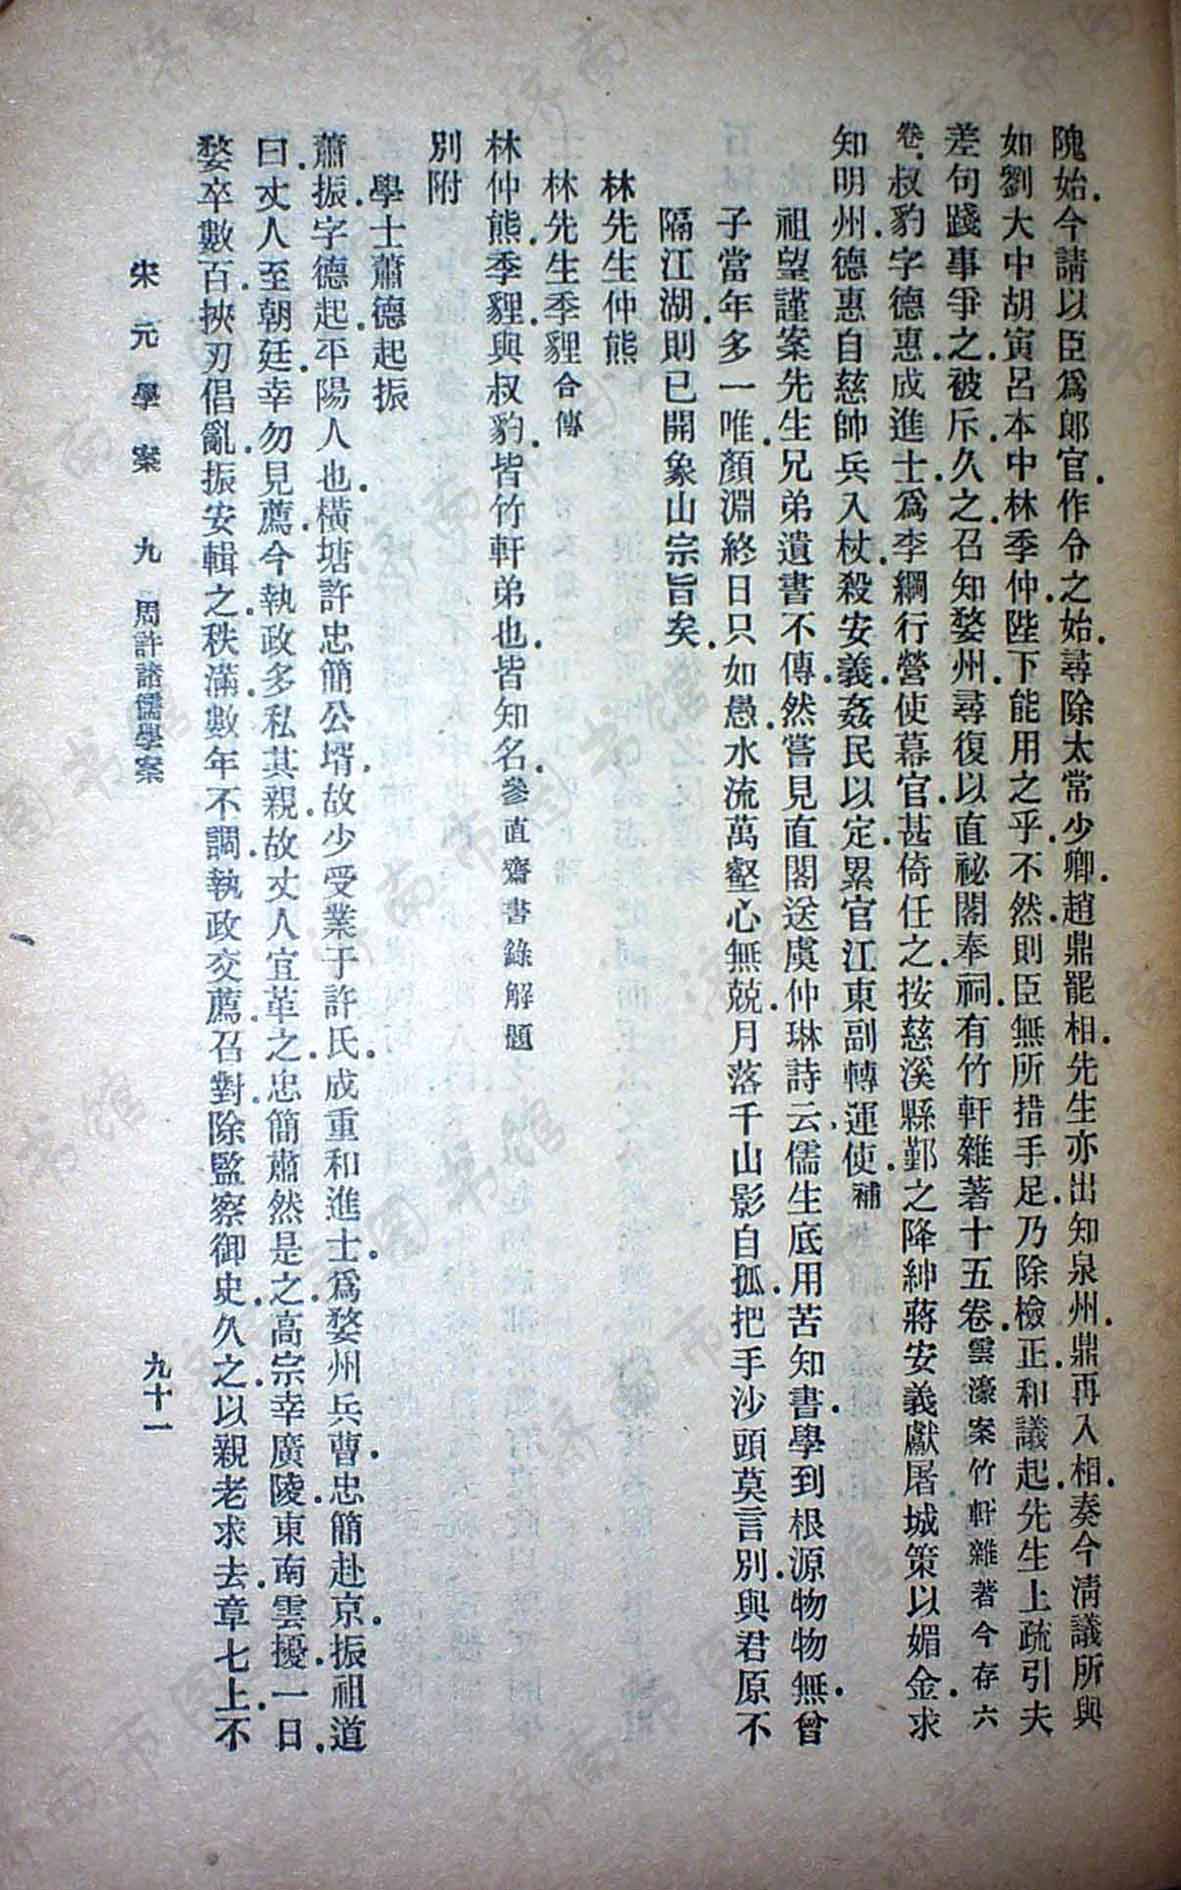 隗始.今請以臣爲郎官.作令之始.尋除太常少卿.趙鼎罷相.先生亦出知泉州.鼎再入相.奏今清議所與
如劉大中胡寅呂本中林季仲.陛下能用之乎.不然.則臣無所措手足.乃除檢正.和議起.先生上疏引夫
差句踐事爭之.被斥.久之.召知婺州.尋復以直祕閣奉祠.有竹軒雜著十五卷.雲濠案竹軒雜著今存六
卷.叔豹字德惠.成進士.爲李綱行營使幕官.甚倚任之.按慈溪縣鄞之降紳蔣安義獻屠城策以媚金.求
知明州.德惠自慈帥兵入杖殺安義.姦民以定.累官江東副轉運使.補
祖望謹案先生兄弟遺書不傳.然嘗見直閣送虞仲琳詩云.儒生底用苦知書.學到根源物物無.曾
子當年多一唯.顏淵終日只如愚.水流萬壑心無兢.月落千山影自孤.把手沙頭莫言別.與君原不
隔江湖.則已開象山宗旨矣.
林先生仲熊
林先生季貍合傳
林仲熊.季貍.與叔豹.皆竹軒弟也.皆知名.參直齋書錄解題
別附
學士蕭德起振
蕭振.字德起.平陽人也.橫塘許忠簡公壻.故少受業于許氏.成重和進士.爲婺州兵曹.忠簡赴京.振祖道
曰.丈人至朝廷.幸勿見薦.今執政多私其親.故丈人宜革之.忠簡肅然是之.高宗幸廣陵.東南雲擾.一日.
婺卒數百.挾刃倡亂.振安輯之.秩滿.數年不調.執政交薦.召對.除監察御史.久之.以親老求去.章七上.不
宋元學案　九　周許諸儒學案
九十一